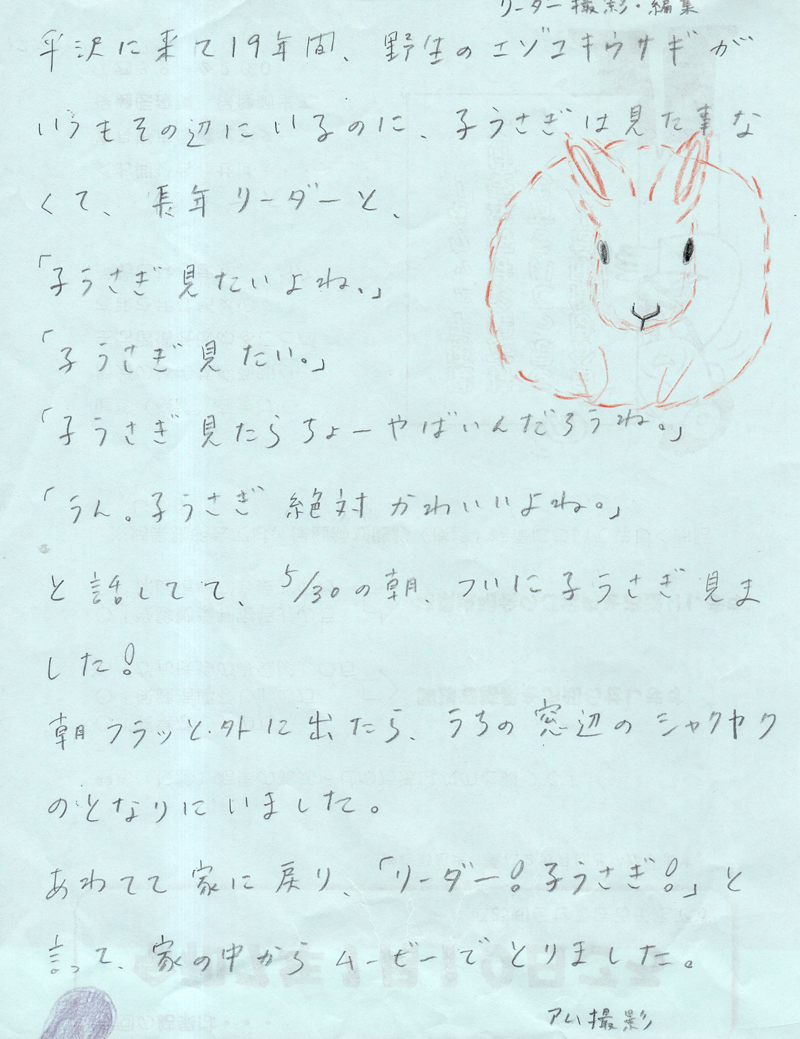 リーダー撮影・編集
平沢に来て19年間、野生のエゾユキウサギが
いつもその辺にいるのに、子うさぎは見た事な
くて、長年リーダーと、
「子うさぎ見たいよね。」
「子うさぎ見たい。」
「子うさぎ見たらちょーやばいんだろうね。」
「うん。子うさぎ絶対かわいいよね。」
と話してて、5/30の朝、ついに子うさぎ見ま
した!
朝フラッと外に出たら、うちの窓辺のシャクヤク
のとなりにいました。
あわてて家に戻り、「リーダー!子うさぎ!」と
言って、家の中からムービーでとりました。
アム撮影